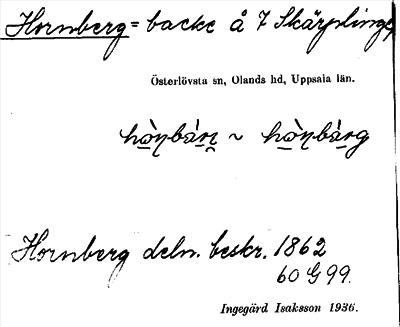 Hornberg = backe å 7 Skärplinge,
Österlövsta sn, Olands hd, Uppsala län.
hὼɳbárɳ ~ hὼɳbàrg
Hornberg deln. beskr. 1862
60 G 99.
Ingegärd Isaksson 1936.